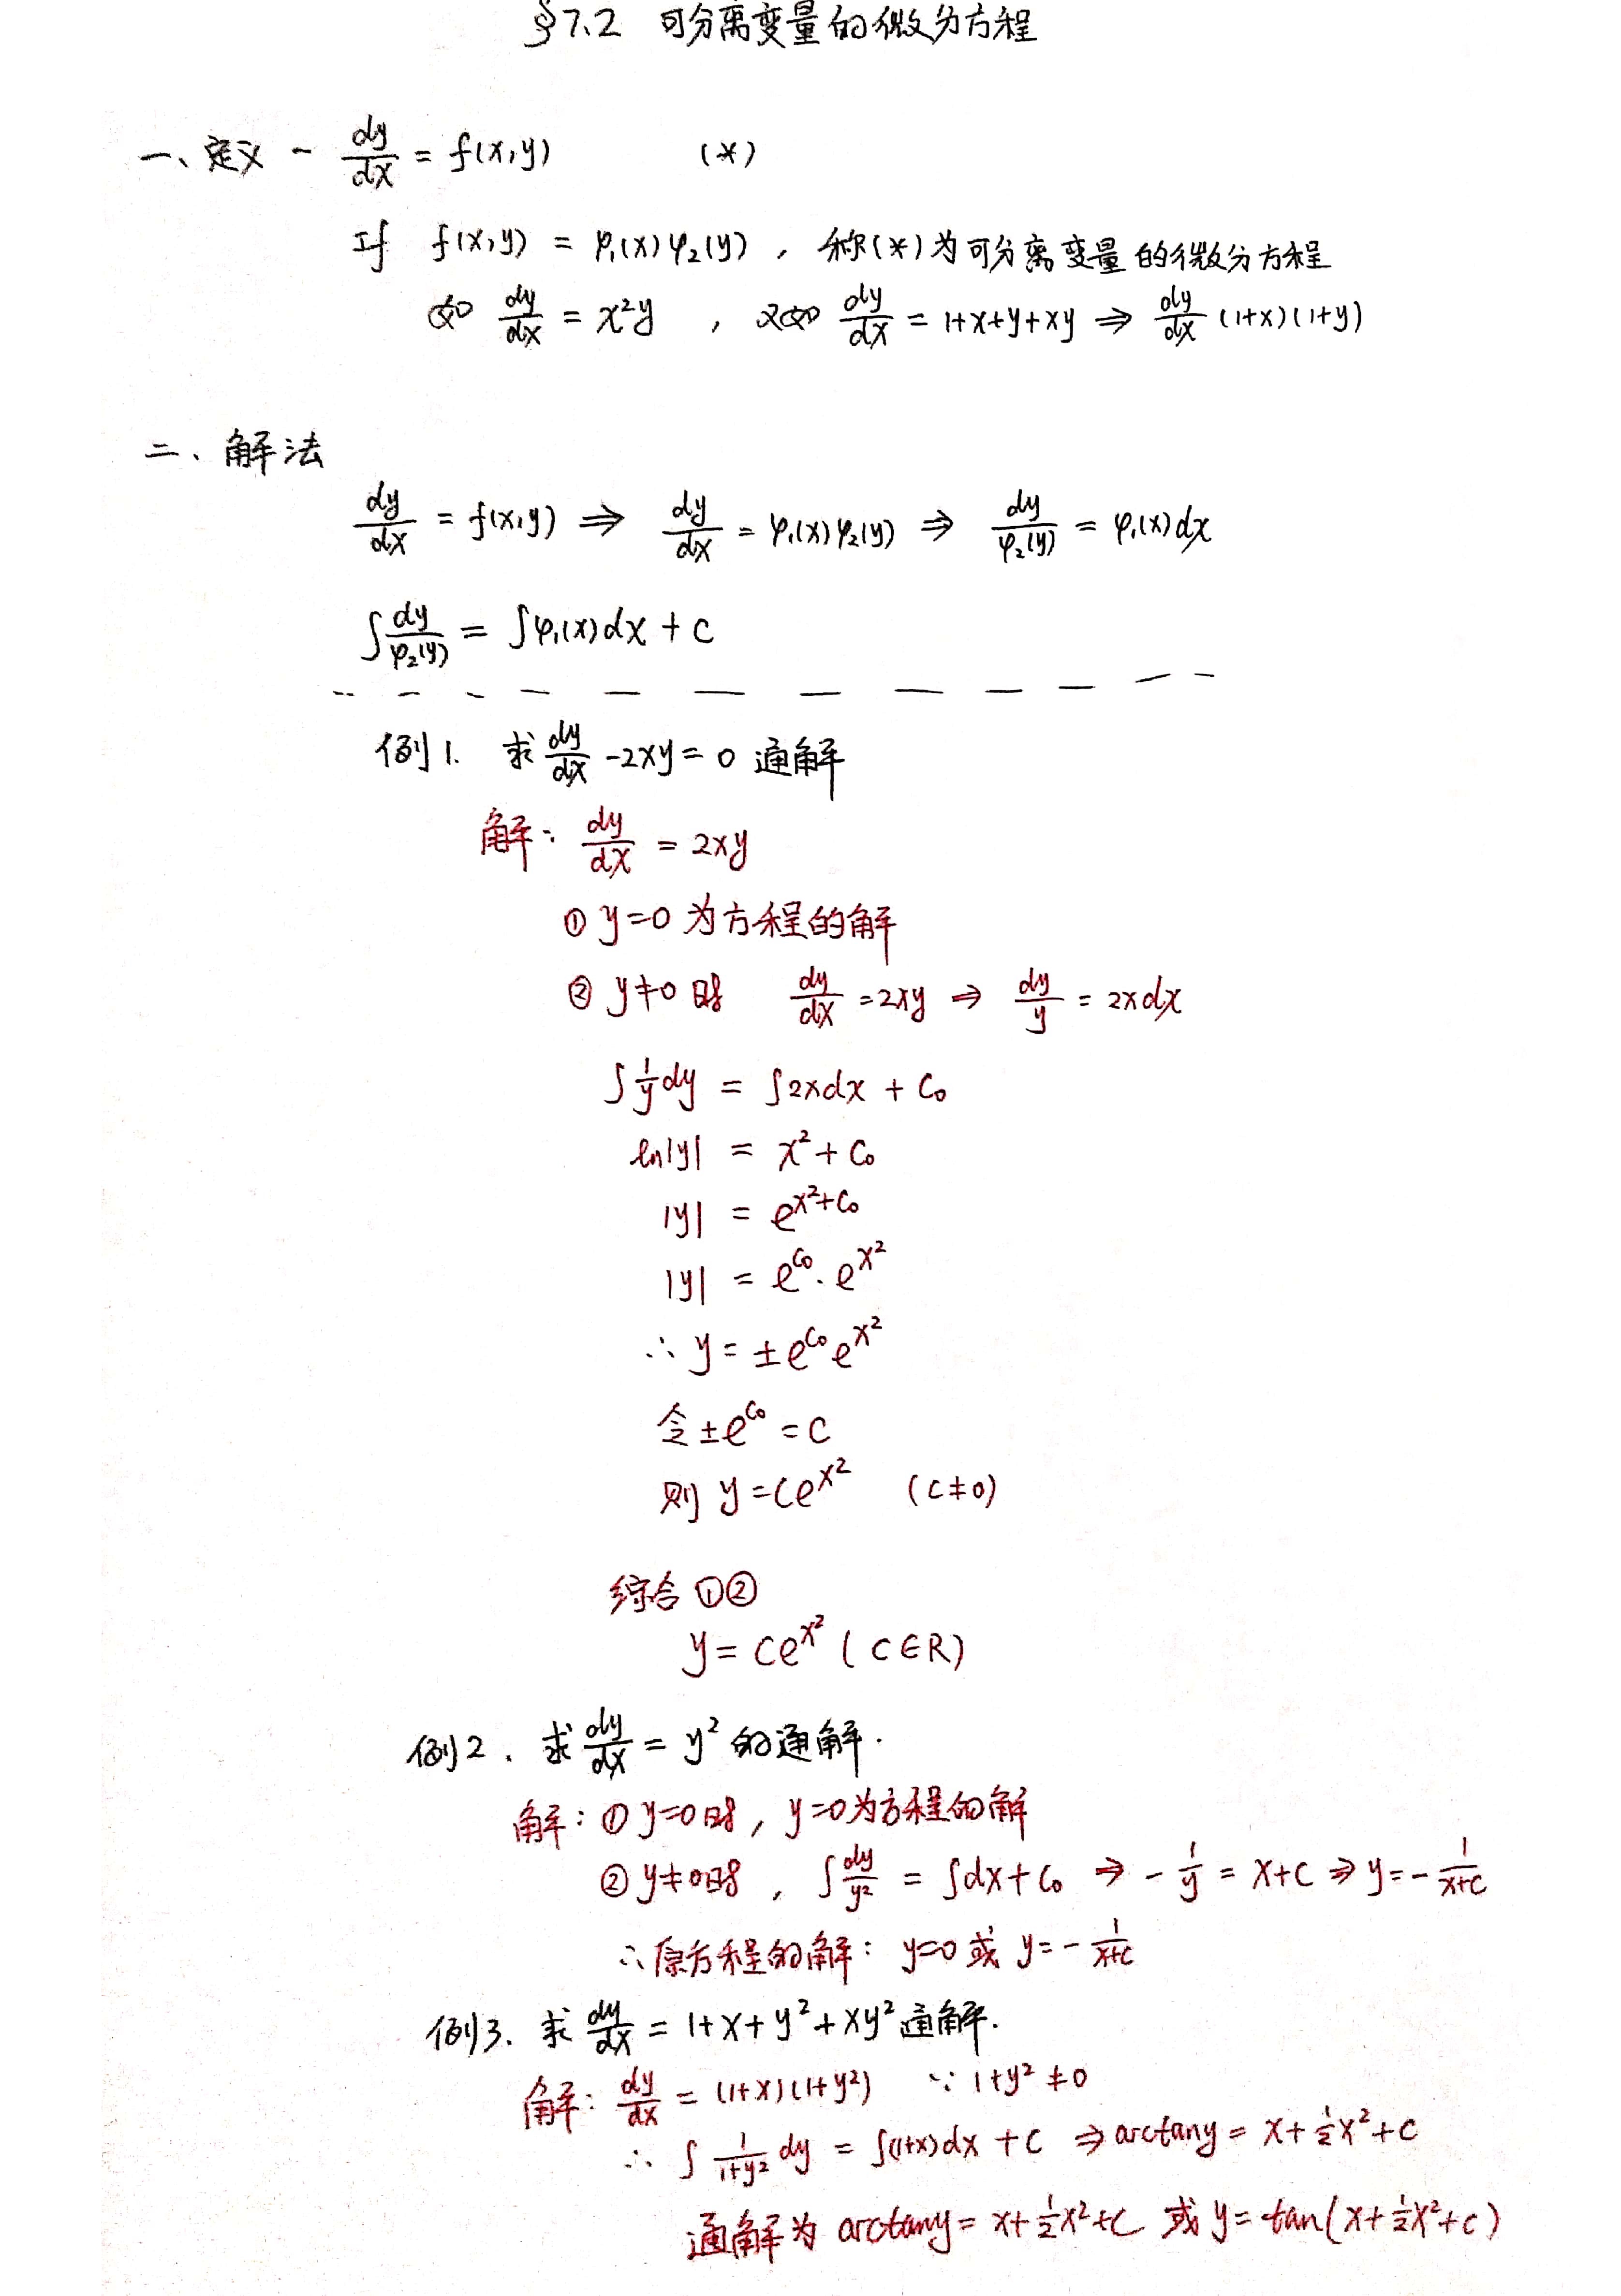 §7.2 可分离变量的微分方程
一、定义 - dy/dx = f(x,y) (*)
If f(x,y) = φ₁(x)φ₂(y) , 称(*)为可分离变量的微分方程
如 dy/dx = x²y , 又如 dy/dx = 1+x+y+xy ⇒ dy/dx (1+x)(1+y)
二、解法
dy/dx = f(x,y) ⇒ dy/dx = φ₁(x)φ₂(y) ⇒ dy/φ₂(y) = φ₁(x)dx
∫dy/φ₂(y) = ∫φ₁(x)dx + C
例1. 求 dy/dx -2xy = 0 通解
解: dy/dx = 2xy
① y=0 为方程的解
② y≠0 时 dy/dx = 2xy ⇒ dy/y = 2xdx
∫1/y dy = ∫2xdx + C₀
ln|y| = x² + C₀
|y| = e^(x²+C₀)
|y| = e^C₀ · e^x²
∴ y = ±e^C₀ e^x²
令 ±e^C₀ = C
则 y = Ce^x² (C≠0)
综合①②
y = Ce^x² (C∈R)
例2. 求 dy/dx = y² 的通解.
解: ① y=0时, y=0为方程的解
② y≠0时, ∫dy/y² = ∫dx+C₀ ⇒ -1/y = x+C ⇒ y = -1/(x+c)
∴原方程的解: y=0 或 y = -1/(x+c)
例3. 求 dy/dx = 1+x+y²+xy² 通解.
解: dy/dx = (1+x)(1+y²) ∵ 1+y² ≠ 0
∴ ∫ 1/(1+y²) dy = ∫(1+x)dx + C ⇒ arctany = x+½x²+C
通解为 arctany = x+½x²+C 或 y = tan(x+½x²+C)